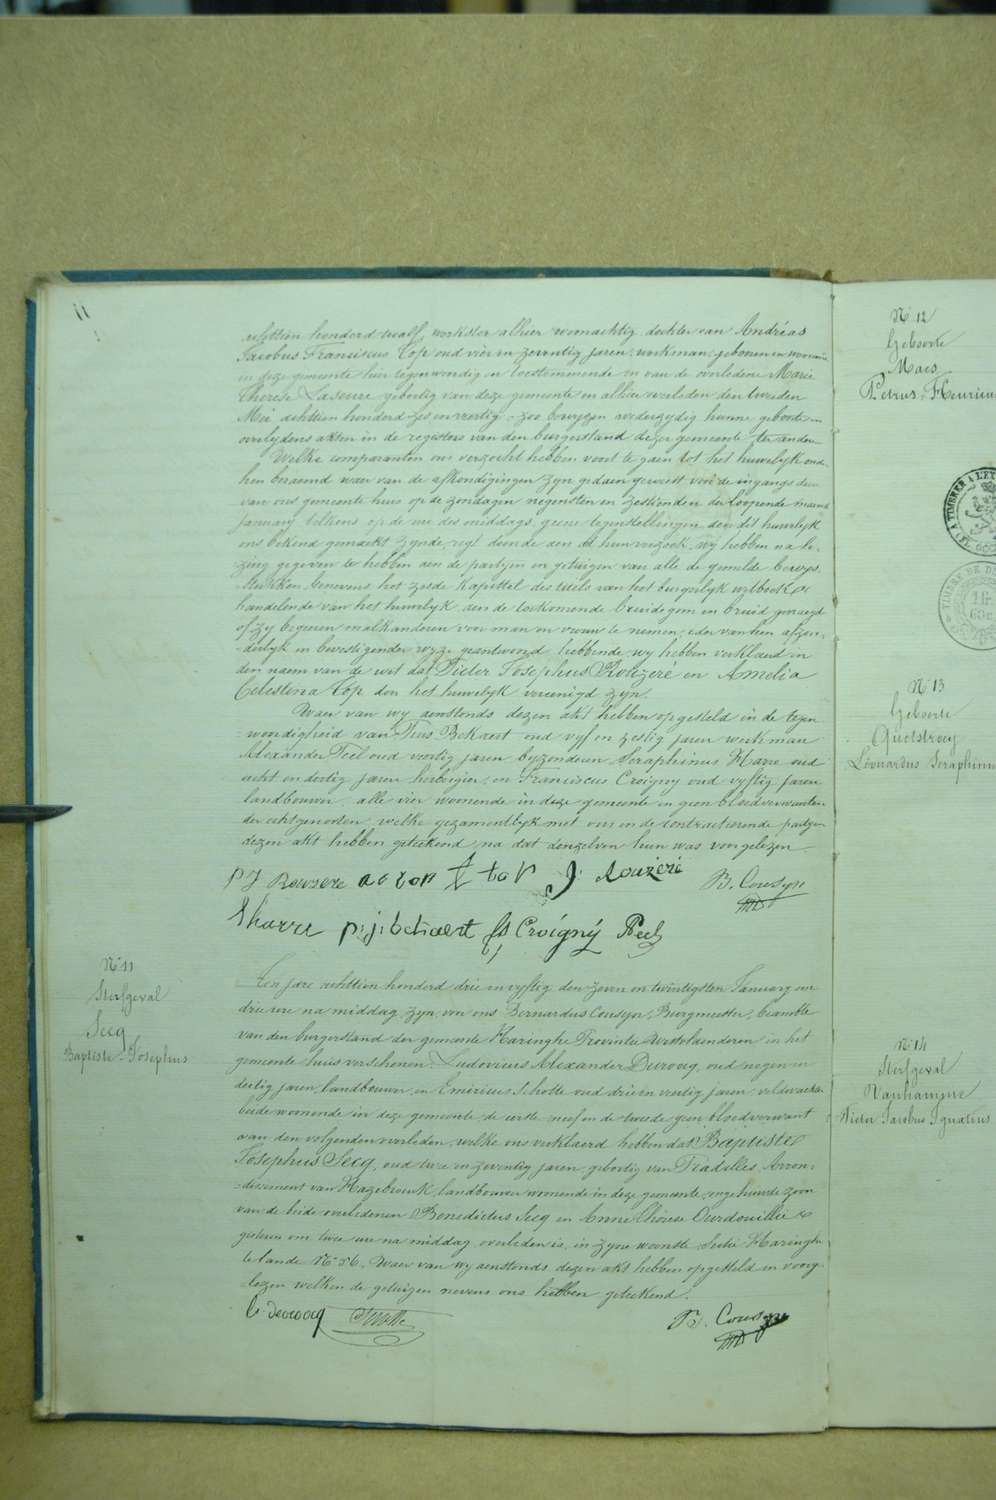 11
achttien honderd twalf, werkster alhier woonachtig, dochter van Andréas
Jacobus Franciscus Top oud vier en zeventig jaren, werkman, geboren en woonende
in deze gemeente hier tegenwoordig en toestemmende en van de overledene Marie
Therese Laseure geboortig van deze gemeente en alhier overleden den tweeden
Mei achttien honderd zes en veertig, zoo bewyzen wederzydig hunne geboorte en
overlydens akten in de registers van den burgerstand dezer gemeente
Welke comparanten ons verzocht hebben voort te gaen tot het huwelyk onder
hen beraemd waer van de afkondigingen zyn gedaen geweest voor de ingangs deur
van ons gemeente huis op de zondagen negensten en zestienden der loopende maend
January telkens op de ure des middags, geene tegenstellingen aen dit huwelyk
ons bekend gemaekt zynde, regt doende aen hun verzoek, wy hebben na le-
zing gegeven te hebben aen de partyen en getuigen van alle de gemelde bewys-
stukken benevens het zesde kapittel des titels van het burgerlyk wetboek
handelende van het huwelyk, aen de toekomende bruidegom en bruid gevraegd
of zy begeeren malkanderen voor man en vrouw te nemen, eder van hen afzon-
derlyk en bevestigender wyze geantwoord hebbende, wy hebben verklaerd in
den naem van de wet dat Pieter Josephus Rouzeré en Amelia
Celestina Top door het huwelyk vereenigd zyn.
Waer van wy aenstonds dezen akt hebben opgesteld in de tegen
woordigheid van Pius Bekaert oud vyf en zestig jaren werkman
Alexander Peel oud veertig jaren byzonderen Seraphinus Harre oud
acht en dertig jaren herbergier, en Franciscus Croigny oud vyftig jaren
landbouwer, alle vier woonende in deze gemeente en geen bloedverwanten
der echtgenooten, welke gezamentlyk met ons en de contracteerende partyen
dezen akt hebben geteekend, na dat denzelven hun was voorgelezen.
p J Rouzere a c top top J. Rouzéré B. Cousyn
S harre p.j. bekaert Croigny Peel
N° 11
Sterfgeval
Secq
Baptiste Josephus
Ten jare achttien honderd drie en vyftig den zeven en twintigsten January om
drie ure na middag, zyn voor ons Bernardus Cousyn, Burgmeester, beambte
van den burgerstand der gemeente Haringhe Provintie Westvlaenderen in het
gemeente huis verschenen, Ludovicus Alexander Devoocq, oud negen en
dertig jaren, landbouwer, en Emiricus Schotte oud drie en veertig jaren, veldwachter
beide woonende in deze gemeente de eerste neef en de tweede geen bloedverwant
aan den volgenden overleden, welke ons verklaerd hebben dat Baptiste
Josephus Secq, oud twee en zeventig jaren, geboortig van Pradelles, Arron-
dissement van Hazebrouck, landbouwer woonende in deze gemeente, ongehuwde zoon
van de beide overledenen Benedictus Secq en Anne Thérese Ourdouillié
gisteren om twee ure na middag overleden is, in zyne woonste Sectie Haringhe
te lande N° 56. Waer van wy aenstonds dezen akt hebben opgesteld en voorge-
lezen welken de getuigen nevens ons hebben geteekend.
Schotte B. Cousyn
N° 12
Geboorte
Maes
Petrus Henricus
N° 13
Geboorte
Quetstroey
Léonardus Seraphinus
N° 14
Sterfgeval
Vanhampre
Victor Jacobus Ignatius